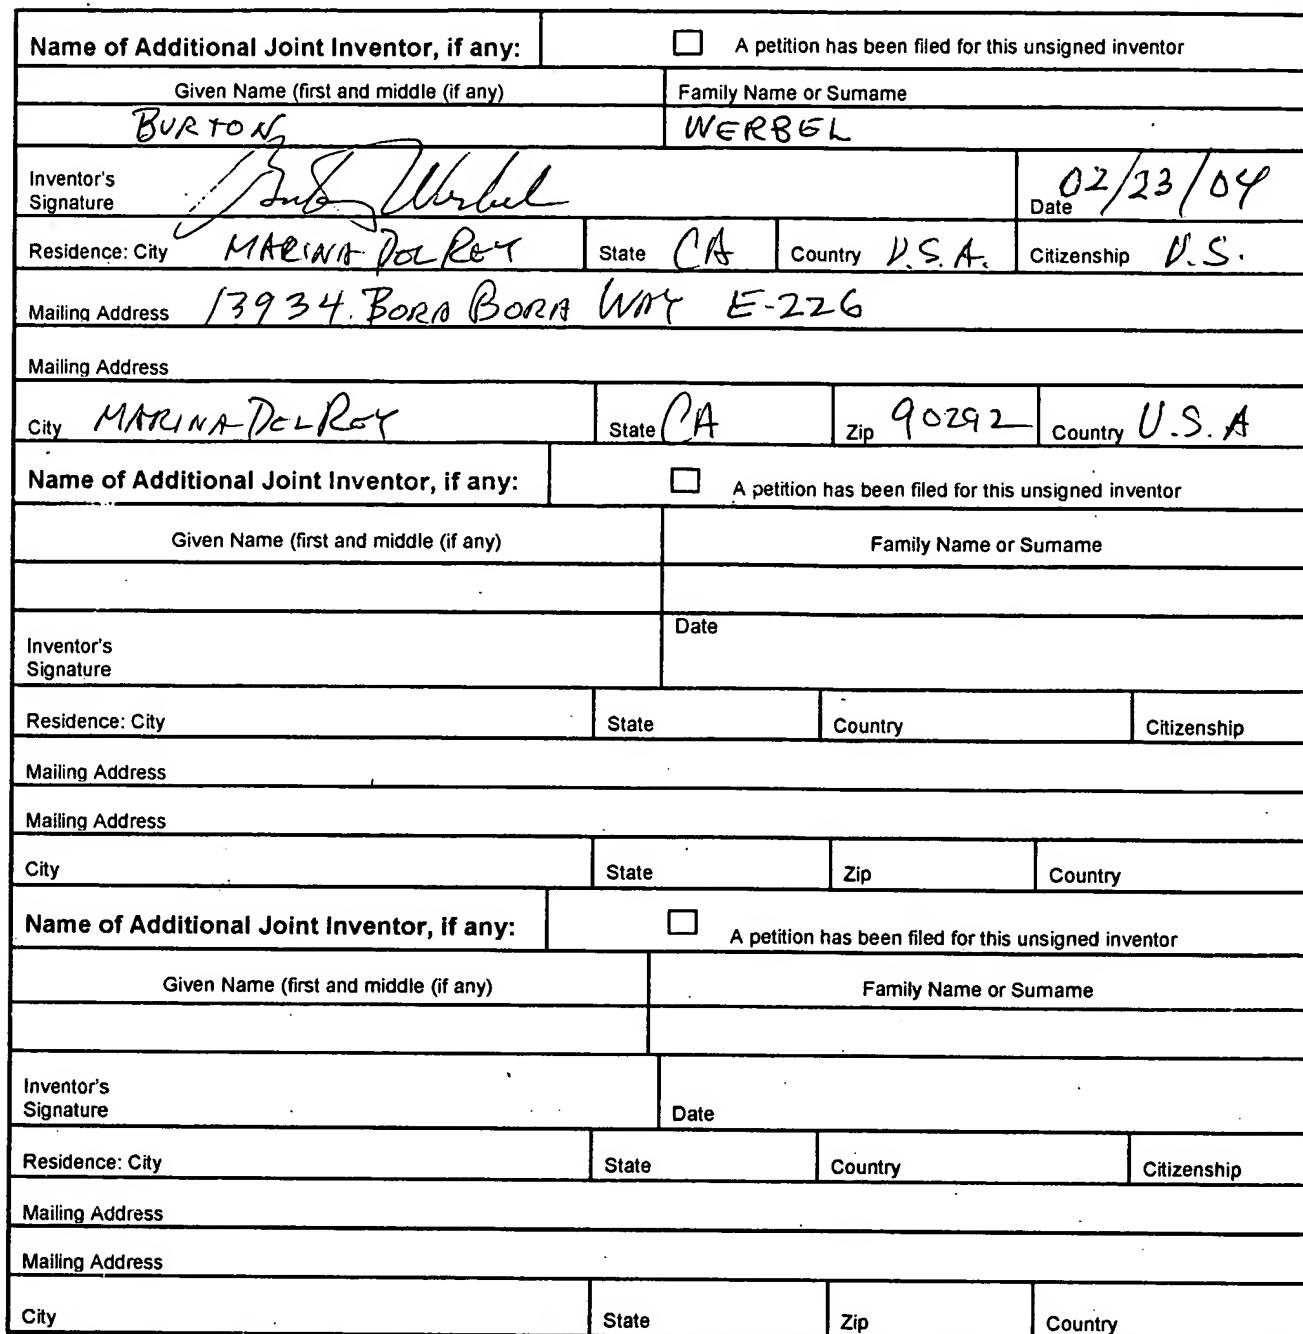 Name of Additional Joint Inventor, if any: A petition has been filed for this unsigned inventor
Given Name (first and middle (if any) Family Name or Surname
BURTON WERBEL
Inventor's
Signature Burton Werbel Date 02/23/04
Residence: City MARINA DEL REY State CA Country U.S.A. Citizenship U.S.
Mailing Address 13934 BORA BORA WAY E-226
Mailing Address
City MARINA DEL REY State CA Zip 90292 Country U.S.A
Name of Additional Joint Inventor, if any: A petition has been filed for this unsigned inventor
Given Name (first and middle (if any) Family Name or Surname
Date
Inventor's
Signature
Residence: City State Country Citizenship
Mailing Address
Mailing Address
City State Zip Country
Name of Additional Joint Inventor, if any: A petition has been filed for this unsigned inventor
Given Name (first and middle (if any) Family Name or Surname
Inventor's
Signature Date
Residence: City State Country Citizenship
Mailing Address
Mailing Address
City State Zip Country